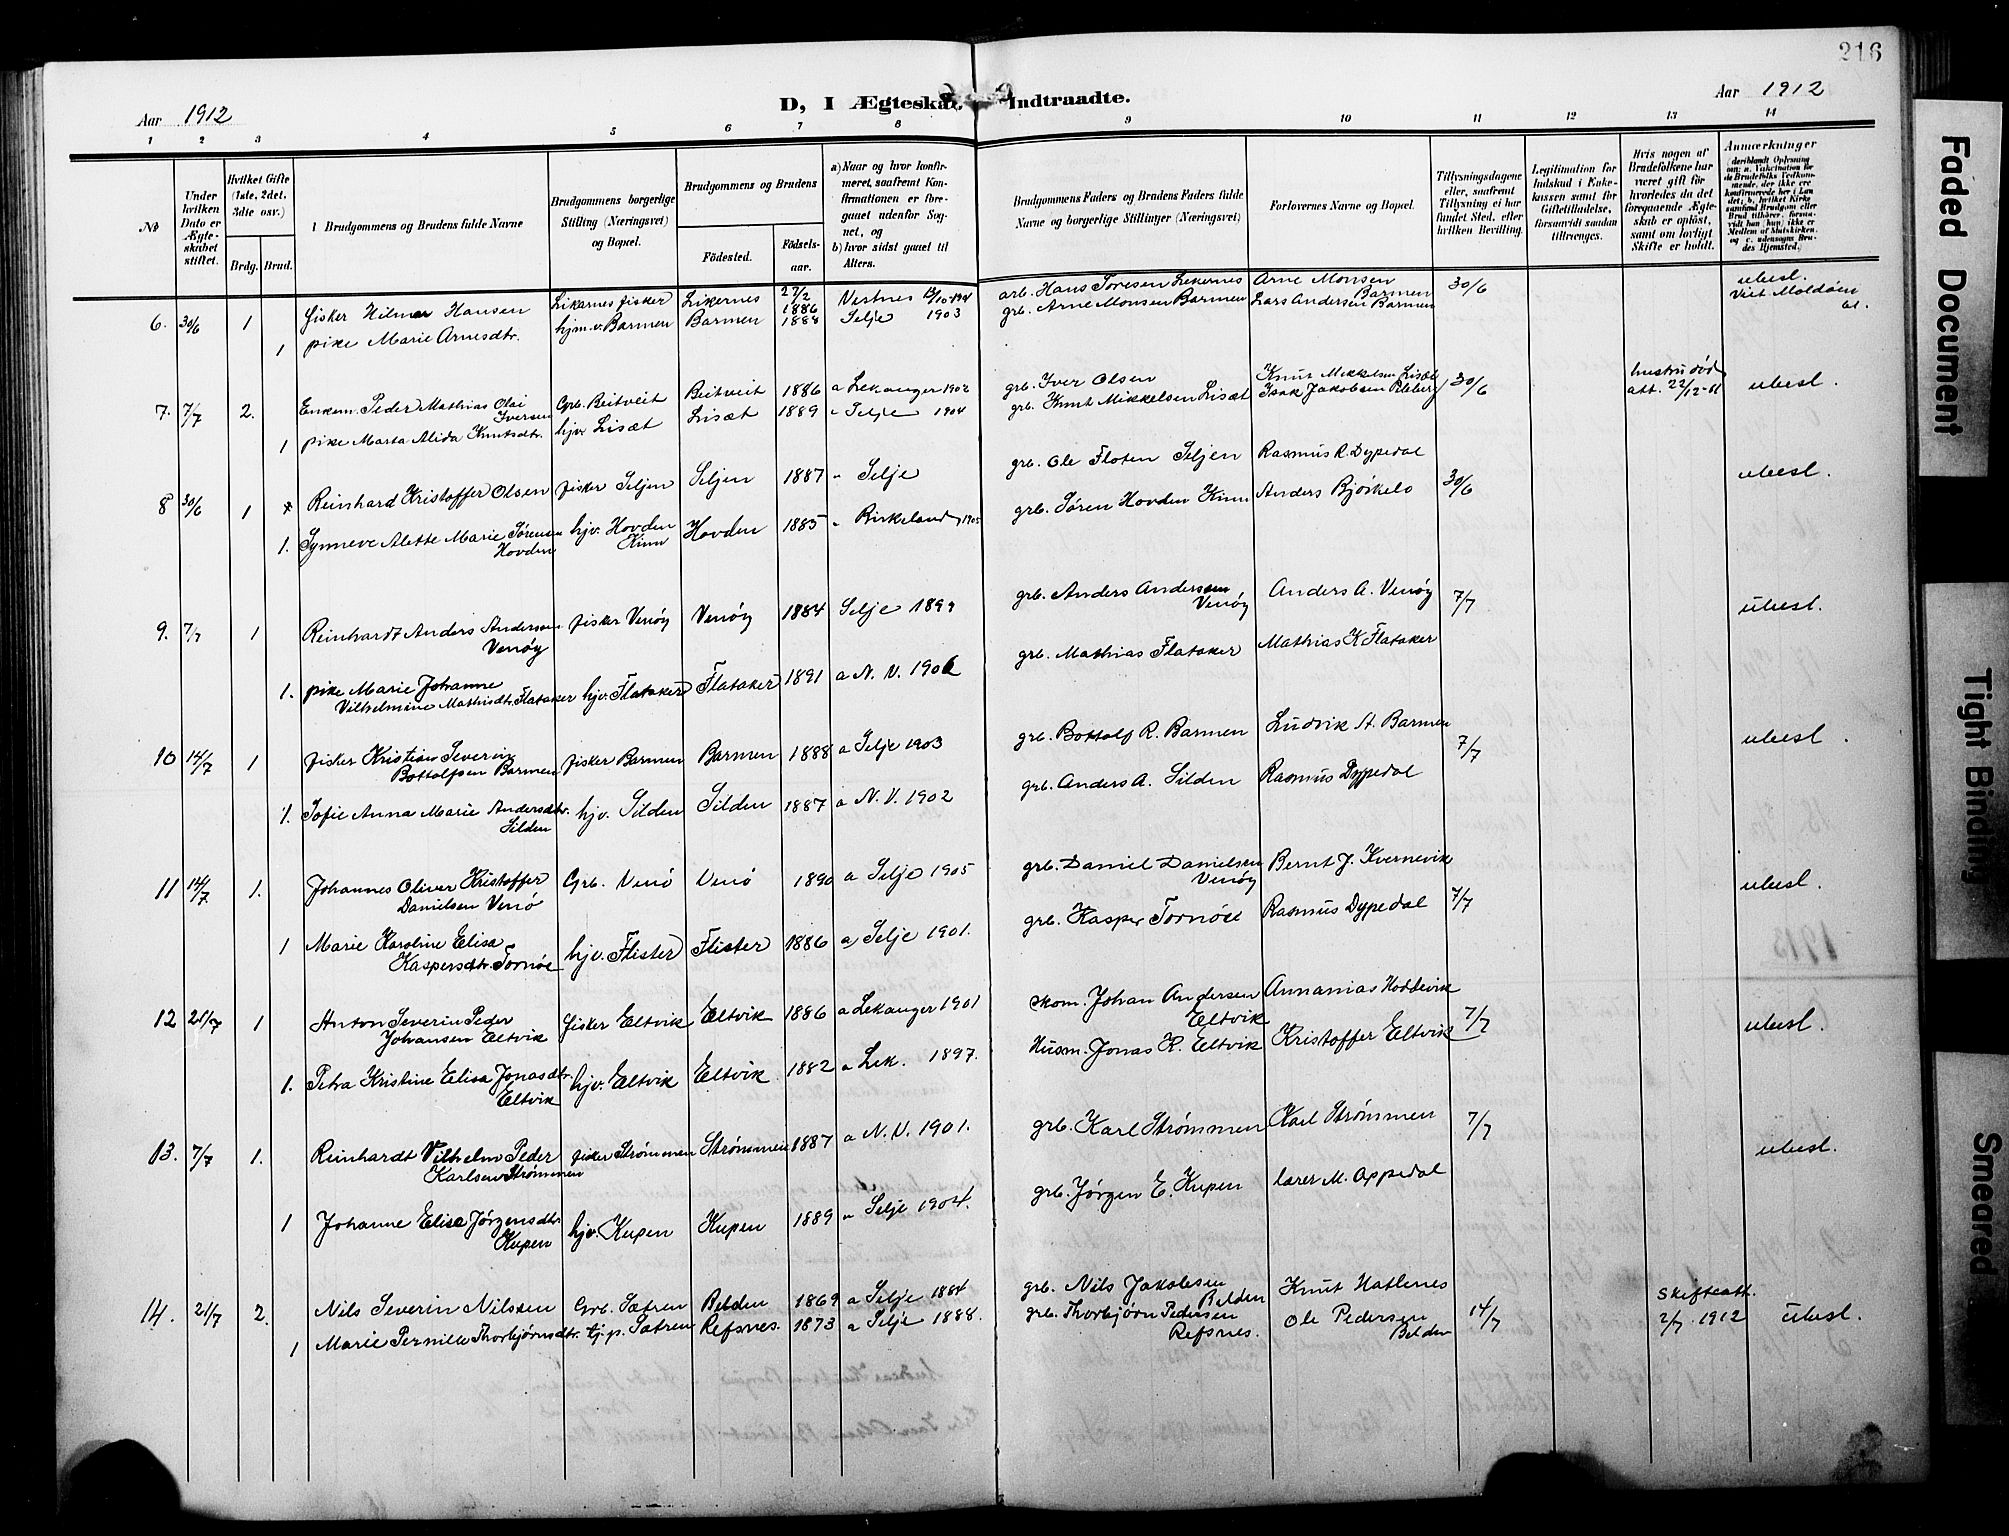 216
Aar 1912
D, I Ægteskab Indtraadte.
Aar 1912
1 2 3 4 5 6 7 8 9 10 11 12 13 14
No
Under hvilken Dato er Ægteskabet stiftet.
Hvilket Gifte (1ste, 2det, 3die osv.)
Brdg. Brud.
Brudgommens og Brudens fulde Navne
Brudgommens borgerlige Stilling (Næringsvei) og Bopæl.
Brudgommens og Brudens
Födested.
Födselsaar.
a) Naar og hvor konfirmeret, saafremt Konfirmationen er foregaaet udenfor Sognet, og
b) hvor sidst gaaet til Alters.
Brudgommens Faders og Brudens Faders fulde Navne og borgerlige Stillinger (Næringsvei)
Forlovernes Navne og Bopæl.
Tillysningsdagene eller, saafremt Tillysning ei har fundet Sted, efter hvilken Bevilling.
Legitimation for Indskud i Enkekassen samt for Giftetilladelse, forsaavidt saadan tiltrænges.
Hvis nogen af Brudefolkene har været gift för hvorledes da det foregaaende Ægteskab er oplöst, samt om lovligt Skifte er holdt.
Anmærkninger
6. 30/6 1 fisker Hilmar Hansen Likarnes fisker Likernes 27/2 1886 Vestnes arb. Hans Toresen Lekernes Arne Monsen Barmen 30/6 ubesl.
1 pike Marie Arnesdtr. hjm.v. Barmen Barmen 1888 Selje 1903 grb. Arne Monsen Barmen Lars Andersen Barmen
7. 7/7 2. Enkem. Peder Mathias Olai Iversen Grb. Beitveit Beitveit 1886 a Lekanger 1902 grb. Iver Olsen Knut Mikkelsen Lisæt 30/6 hustru död att. 22/12-11 ubesl.
1 pike Marta Alida Knutsdtr. hjv Lisæt Lisæt 1889 " Selje 1904 grb. Knut Mikkelsen Lisæt Isak Jakobsen
8 30/6 1 Reinhard Kristoffer Olsen fisker Seljen Seljen 1887 " Selje grb. Ole Floten Seljen Rasmus R. Dypedal 30/6 ubesl.
1. Synneve Alette Marie Sörensen Hovden hjv. Hovden Kinn Hovden 1885 " Birkeland 1905 grb. Sören Hovden Kinn Anders Bjørkelo
9. 7/7 1 Reinhardt Anders Andersen Venöy fisker Venöy Venöy 1884 Selje 1899 grb. Anders Andersen Venöy Anders A. Venöy 7/7 ubesl.
1. pike Marie Johanne Vilhelmine Mathisdtr. Flataker hjv. Flataker Flataker 1891 a N. V. 1906 grb. Mathias Flataker Mathias K Flataker
10 14/7 1 fisker Kristian Severin Bottolfsen Barmen fisker Barmen Barmen 1888 a Selje 1903 grb. Bottolf R. Barmen Ludvik A. Barmen 7/7 ubesl.
1. Sofie Anna Marie Andersdtr. Silden hjv. Silden Silden 1887 a N. V. 1902 grb. Anders A. Silden Rasmus Dypedal
11 14/7 1. Johannes Oliver Kristoffer Danielsen Venö Grb. Venö Venö 1890 a Selje 1905 grb. Daniel Danielsen Venöy Bernt J. Kvernevik 7/7 ubesl.
1 Marie Karoline Elisa Kaspersdtr. Tornöe hjv. Flister Flister 1886 a Selje 1901. grb. Kasper Tornöe Rasmus Dypedal
12 21/7 1 Anton Severin Peder Johansen Eltvik fisker Eltvik Eltvik 1886 a Lekanger 1901 skom. Johan Andersen Eltvik Annanias Hoddevik 7/7 ubesl.
1. Petra Kristine Elisa Jonasdtr. Eltvik hjv. Eltvik Eltvik 1882 " Lek. 1897. Husm. Jonas K. Eltvik Kristoffer Eltvik
13. 7/7 1. Reinhardt Vilhelm Peder Karlsen Strømmen fisker Strømmen Strømmen 1887 a N. V. 1901. grb. Karl Strømmen Karl Strømmen 7/7 ubesl.
1 Johanne Elise Jørgensdtr. Kupen hjv. Kupen Kupen 1889 " Selje 1904. grb. Jørgen E. Kupen lærer M. Appedal
14. 21/7 2. Nils Severin Nilssen Grb. Sætren Belden 1869 a Selje 1884 grb. Nils Jakobsen Belden Knut Hatlenes 14/7 Skifteatt. 2/7 1912 ubesl.
1 Marie Pernille Thorbjørnsdtr. tj.p. Sætren Refsnes. 1873 a Selje 1888. grb. Thorbjørn Pedersen Refsnes. Ole Pedersen Belden
1913
Faded Document
Tight Binding
Smeared